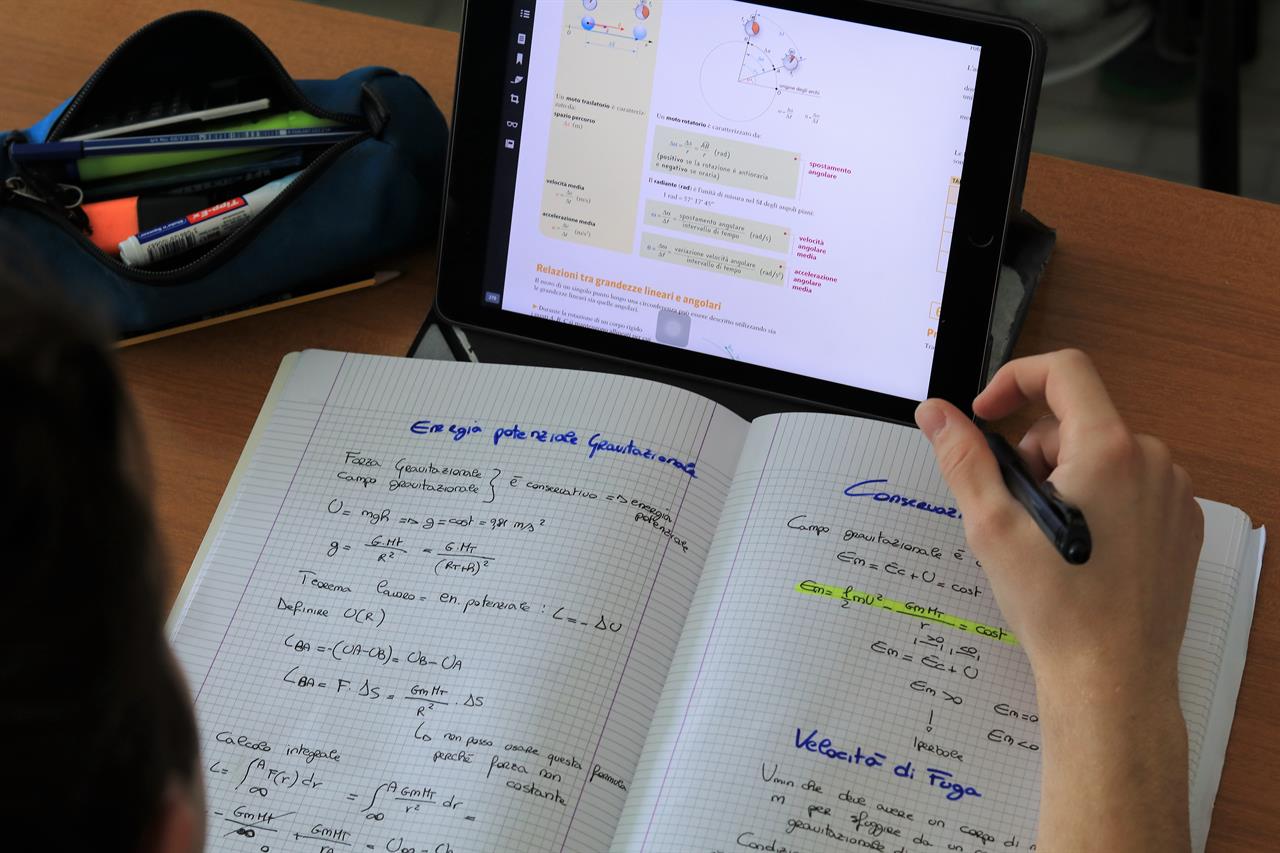 Tipp-Ex
origine degli archi
Un moto traslatorio è caratteriz-
zato da:
spazio percorso
Δs (m)
velocità media
v = Δs/Δt (m/s)
accelerazione media
a = Δv/Δt (m/s²)
Un moto rotatorio è caratterizzato da:
Δα = Δs/r = AB/r (rad)
(positivo se la rotazione è antioraria
e negativo se oraria)
spostamento
angolare
Il radiante (rad) è l'unità di misura nel SI degli angoli piani:
1 rad = 57° 17' 45"
ω = Δα/Δt = spostamento angolare/intervallo di tempo (rad/s)
velocità
angolare
media
α = Δω/Δt = variazione velocità angolare/intervallo di tempo (rad/s²)
accelerazione
angolare
media
Relazioni tra grandezze lineari e angolari
Il moto di un singolo punto lungo una circonferenza può essere descritto utilizzando sia
le grandezze lineari sia quelle angolari.
Durante la rotazione di un corpo rigido
Energia potenziale Gravitazionale
Forza Gravitazionale
Campo gravitazionale } è conservativo => energia
potenziale
U = mgh => g = cost = 9,81 m/s²
g = G·MT/R² = G·MT/(RT+h)²
Teorema lavoro = en. potenziale : L = - ΔU
Definire U(R)
LBA = -(UA-UB) = UB - UA
LBA = F · ΔS = GmMT/R² · ΔS
↳ non posso usare questa formula
perché forza non
costante
Calcolo integrale
L = ∫∞^A F(r) dr = ∫∞^A GmMT/r² dr =
Conservazi
Campo gravitazionale è
Em = Ec + U = cost
Em = 1/2 mU² - GmMT/r = cost
>0 <0
Em = Ec + U
Em >0 Em =0
Em <0
Iperbole
Velocità di Fuga
Vmin che deve avere un corpo di
m per sfuggire da un
gravitazionale di
Condizi